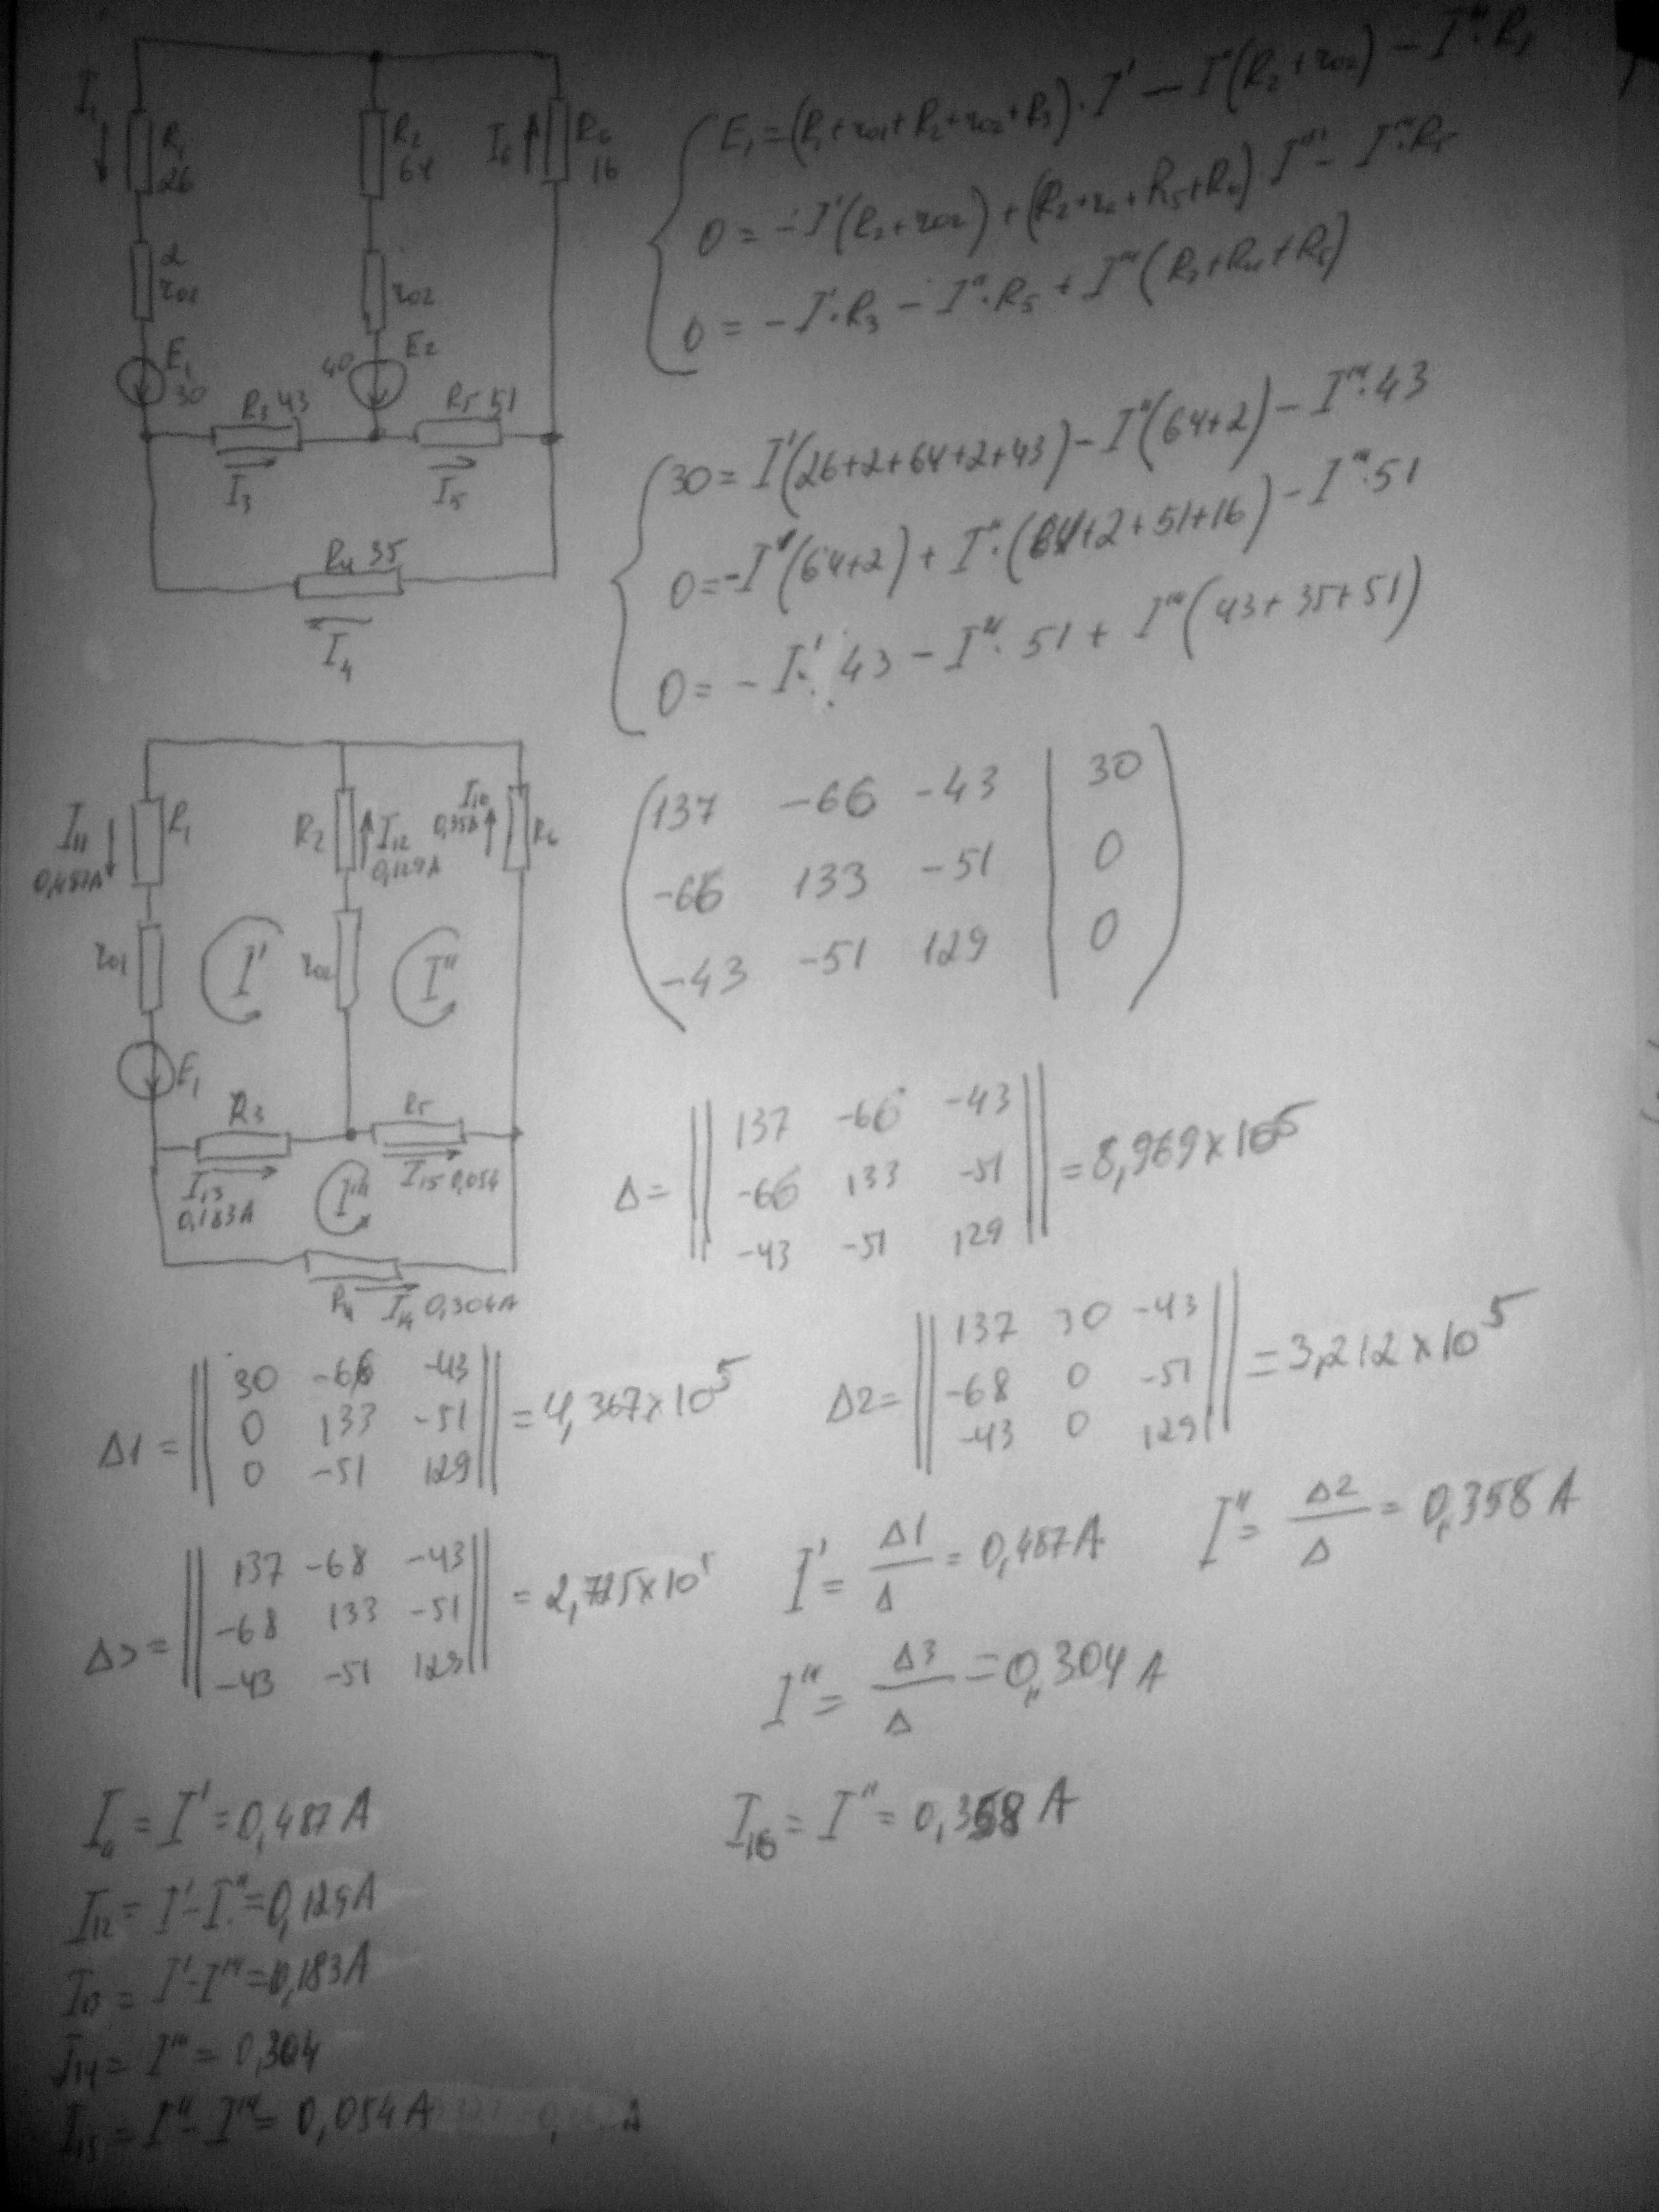 I₁
R₁
26
R₂
64
I₆
R₆
16
2
r₀₁
r₀₂
E₁
30
40
E₂
R₃ 43
R₅ 51
I₃
I₅
R₄ 35
I₄
E₁=(R₁+r₀₁+R₂+r₀₂+R₃)·I' – I''(R₂+r₀₂) – I'''·R₃
0 = –I'(R₂+r₀₂)+(R₂+r₀₂+R₅+R₆) I'' – I'''·R₅
0 = –I'·R₃ – I''·R₅ + I'''(R₃+R₄+R₅)
30= I'(26+2+64+2+43)–I''(64+2)–I'''·43
0=–I'(64+2)+I''·(64+2+51+16)–I'''·51
0= –I'·43–I''·51+ I'''(43+35+51)
I₁₁
0,487A
R₁
R₂
I₁₂
0,129A
I₁₆
0,358
R₆
r₀₁
I'
r₀₂
I''
E₁
R₃
R₅
I₁₃
0,183A
I'''
I₁₅ 0,054
R₄
I₁₄ 0,304A
137 –66 –43 | 30
–66 133 –51 | 0
–43 –51 129 | 0
Δ= || 137 –66 –43
–66 133 –51
–43 –51 129 || =8,969×10⁵
Δ1= || 30 –66 –43
0 133 –51
0 –51 129 || =4,367×10⁵
Δ2= || 137 30 –43
–68 0 –51
–43 0 129 || =3,212×10⁵
Δ3= || 137 –68 –43
–68 133 –51
–43 –51 129 || = 2,725×10⁵
I'= Δ1/Δ =0,487A
I''= Δ2/Δ = 0,358 A
I'''= Δ3/Δ =0,304 A
I₁₁= I'=0,487A
I₁₆= I''= 0,358 A
I₁₂= I'–I''=0,129A
I₁₃= I'–I'''=0,183A
I₁₄= I'''= 0,304
I₁₅= I''–I'''= 0,054A